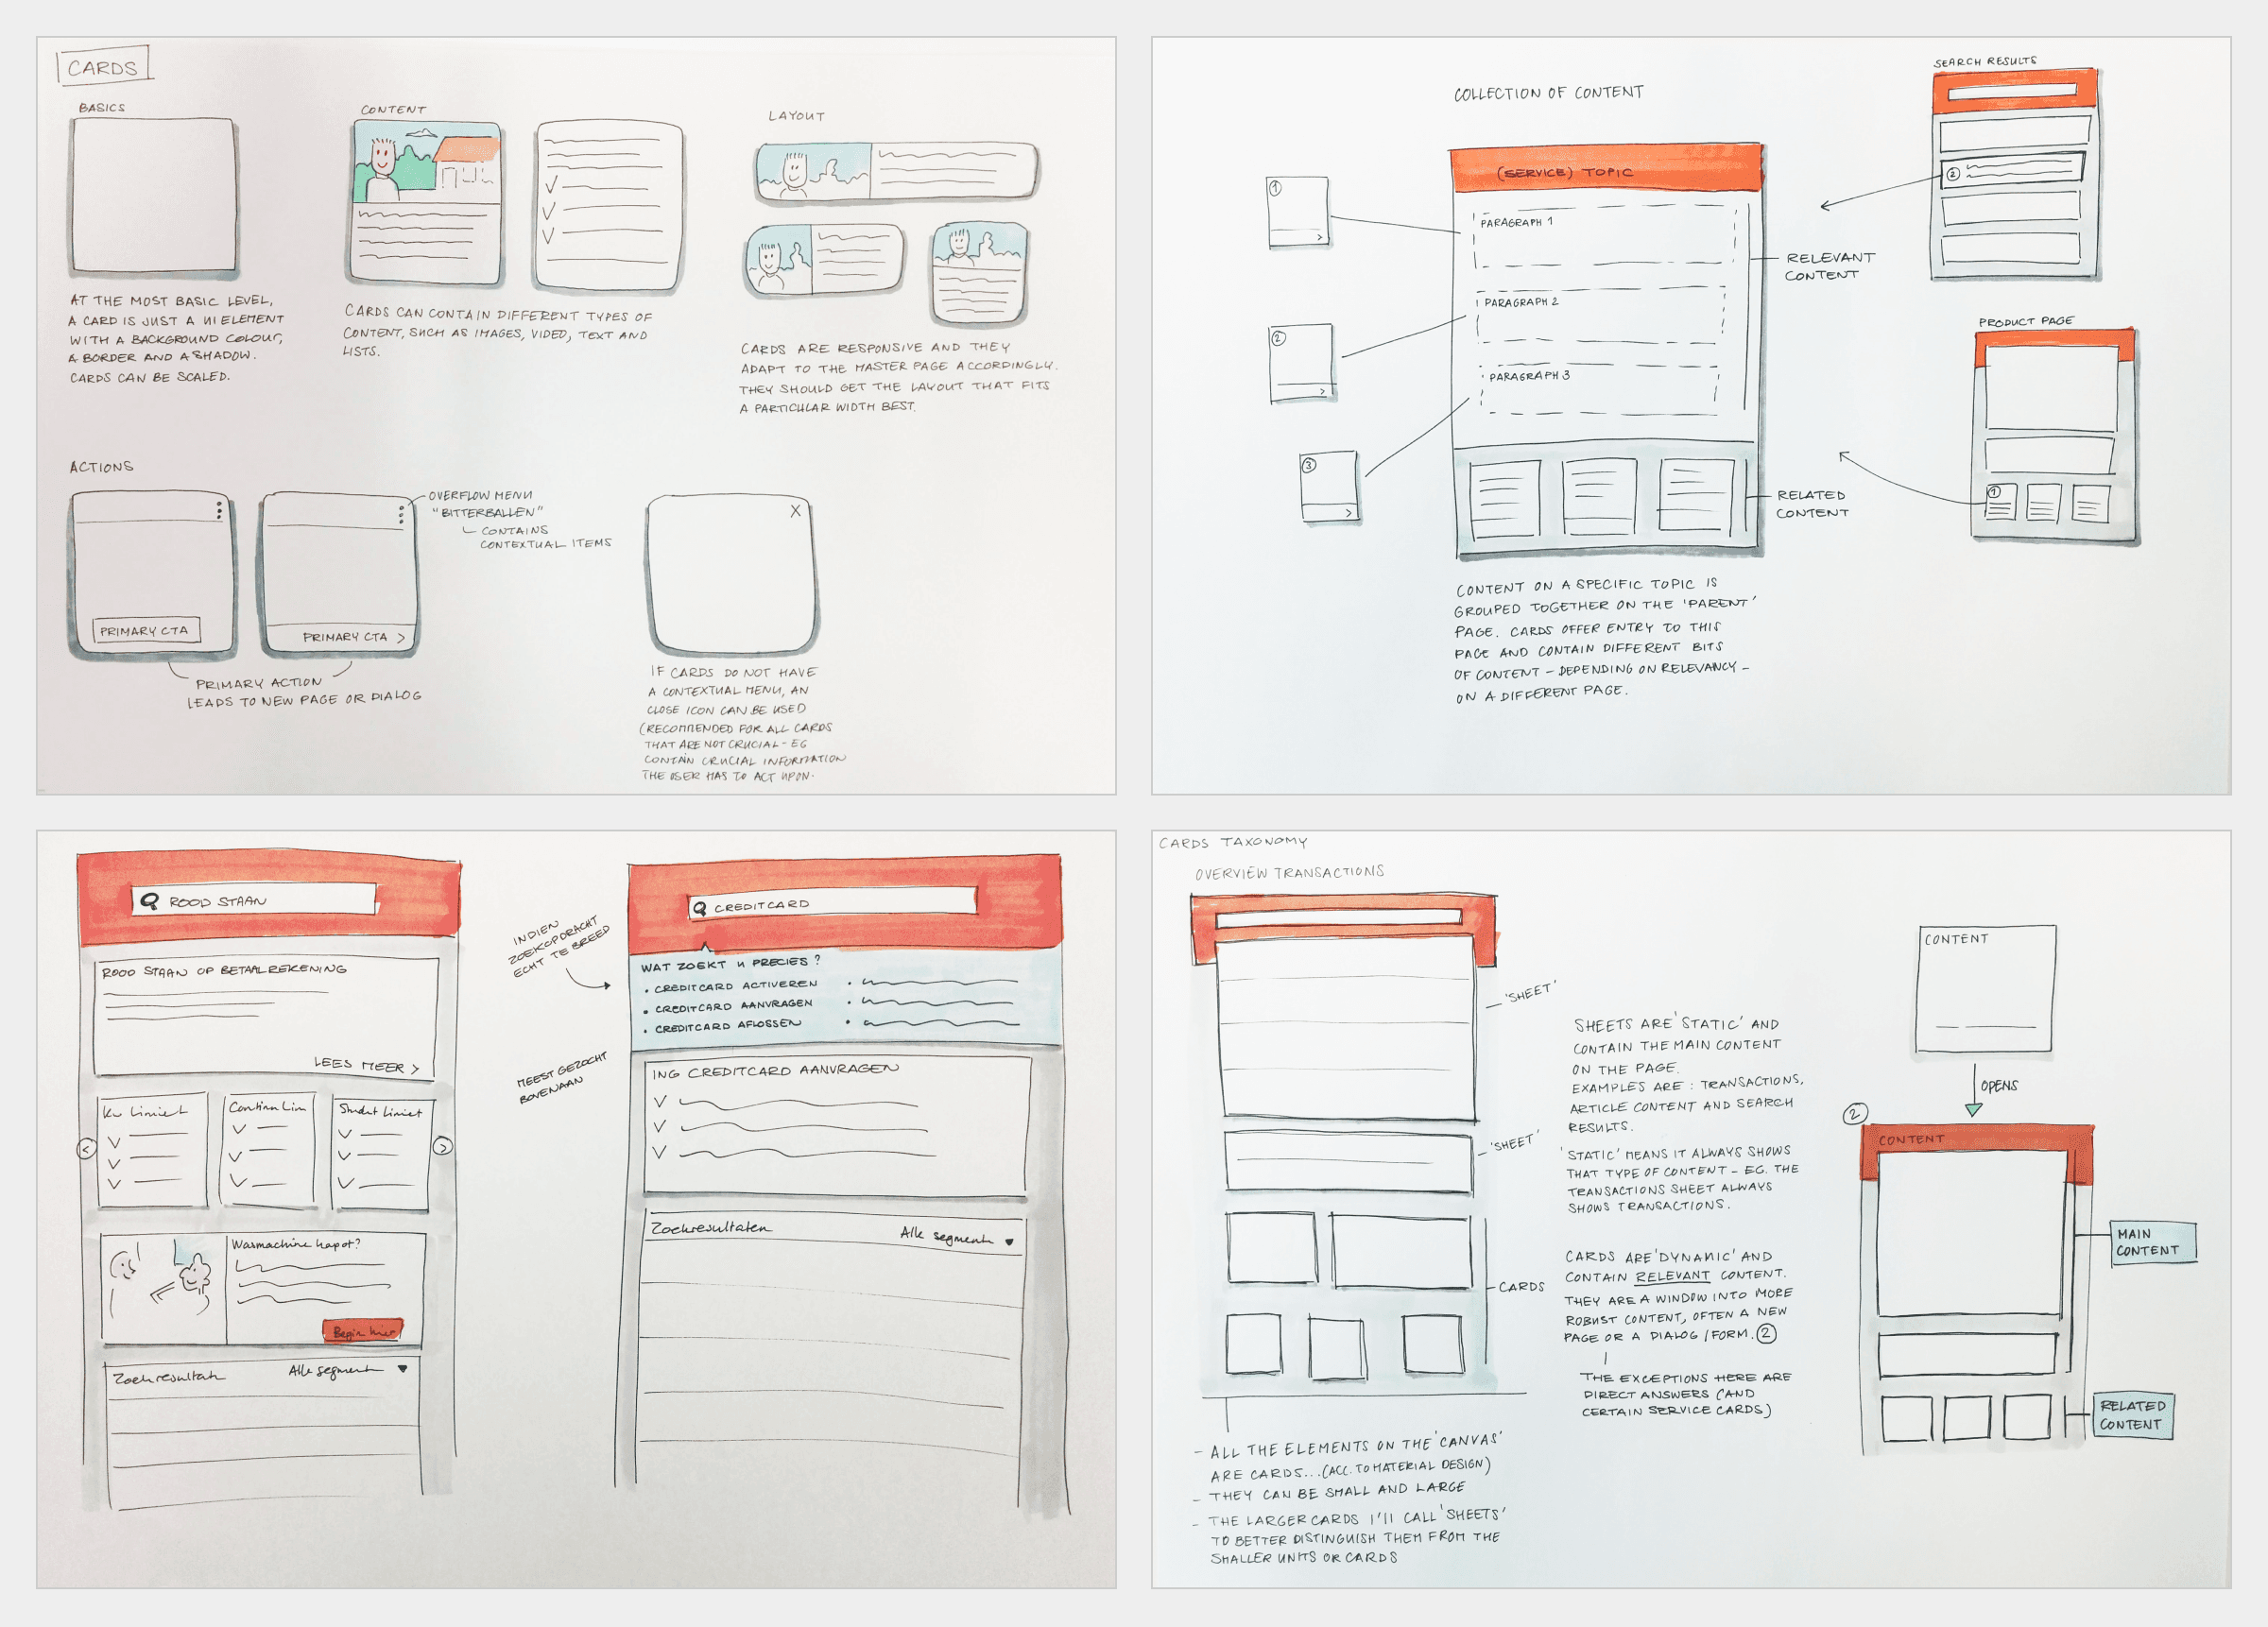 CARDS
BASICS
AT THE MOST BASIC LEVEL,
A CARD IS JUST A UI ELEMENT
WITH A BACKGROUND COLOUR,
A BORDER AND A SHADOW.
CARDS CAN BE SCALED.
CONTENT
CARDS CAN CONTAIN DIFFERENT TYPES OF
CONTENT, SUCH AS IMAGES, VIDEO, TEXT AND
LISTS.
LAYOUT
CARDS ARE RESPONSIVE AND THEY
ADAPT TO THE MASTER PAGE ACCORDINGLY.
THEY SHOULD GET THE LAYOUT THAT FITS
A PARTICULAR WIDTH BEST.
ACTIONS
PRIMARY CTA
PRIMARY CTA >
OVERFLOW MENU
"BITTERBALLEN"
CONTAINS
CONTEXTUAL ITEMS
PRIMARY ACTION
LEADS TO NEW PAGE OR DIALOG
X
IF CARDS DO NOT HAVE
A CONTEXTUAL MENU, AN
CLOSE ICON CAN BE USED
(RECOMMENDED FOR ALL CARDS
THAT ARE NOT CRUCIAL - EG
CONTAIN CRUCIAL INFORMATION
THE USER HAS TO ACT UPON.
COLLECTION OF CONTENT
1
2
3
(SERVICE) TOPIC
PARAGRAPH 1
PARAGRAPH 2
PARAGRAPH 3
RELEVANT
CONTENT
RELATED
CONTENT
SEARCH RESULTS
2
PRODUCT PAGE
1
CONTENT ON A SPECIFIC TOPIC IS
GROUPED TOGETHER ON THE 'PARENT'
PAGE. CARDS OFFER ENTRY TO THIS
PAGE AND CONTAIN DIFFERENT BITS
OF CONTENT - DEPENDING ON RELEVANCY -
ON A DIFFERENT PAGE.
ROOD STAAN
ROOD STAAN OP BETAALREKENING
LEES MEER >
Kw Limiet
Continu Lim
Student Limiet
<
>
Wasmachine kapot?
Begin hier
Zoekresultaten
Alle segment
INDIEN
ZOEKOPDRACHT
ECHT TE BREED
MEEST GEZOCHT
BOVENAAN
CREDITCARD
WAT ZOEKT U PRECIES?
• CREDITCARD ACTIVEREN
• CREDITCARD AANVRAGEN
• CREDITCARD AFLOSSEN
ING CREDITCARD AANVRAGEN
Zoekresultaten
Alle segment
CARDS TAXONOMY
OVERVIEW TRANSACTIONS
'SHEET'
'SHEET'
CARDS
- ALL THE ELEMENTS ON THE 'CANVAS'
ARE CARDS... (ACC. TO MATERIAL DESIGN)
- THEY CAN BE SMALL AND LARGE
- THE LARGER CARDS I'll CALL 'SHEETS'
TO BETTER DISTINGUISH THEM FROM THE
SMALLER UNITS OR CARDS
SHEETS ARE 'STATIC' AND
CONTAIN THE MAIN CONTENT
ON THE PAGE.
EXAMPLES ARE: TRANSACTIONS,
ARTICLE CONTENT AND SEARCH
RESULTS.
'STATIC' MEANS IT ALWAYS SHOWS
THAT TYPE OF CONTENT - EG. THE
TRANSACTIONS SHEET ALWAYS
SHOWS TRANSACTIONS.
CARDS ARE 'DYNAMIC' AND
CONTAIN RELEVANT CONTENT.
THEY ARE A WINDOW INTO MORE
ROBUST CONTENT, OFTEN A NEW
PAGE OR A DIALOG / FORM. 2
THE EXCEPTIONS HERE ARE
DIRECT ANSWERS (AND
CERTAIN SERVICE CARDS)
CONTENT
OPENS
2
CONTENT
MAIN
CONTENT
RELATED
CONTENT